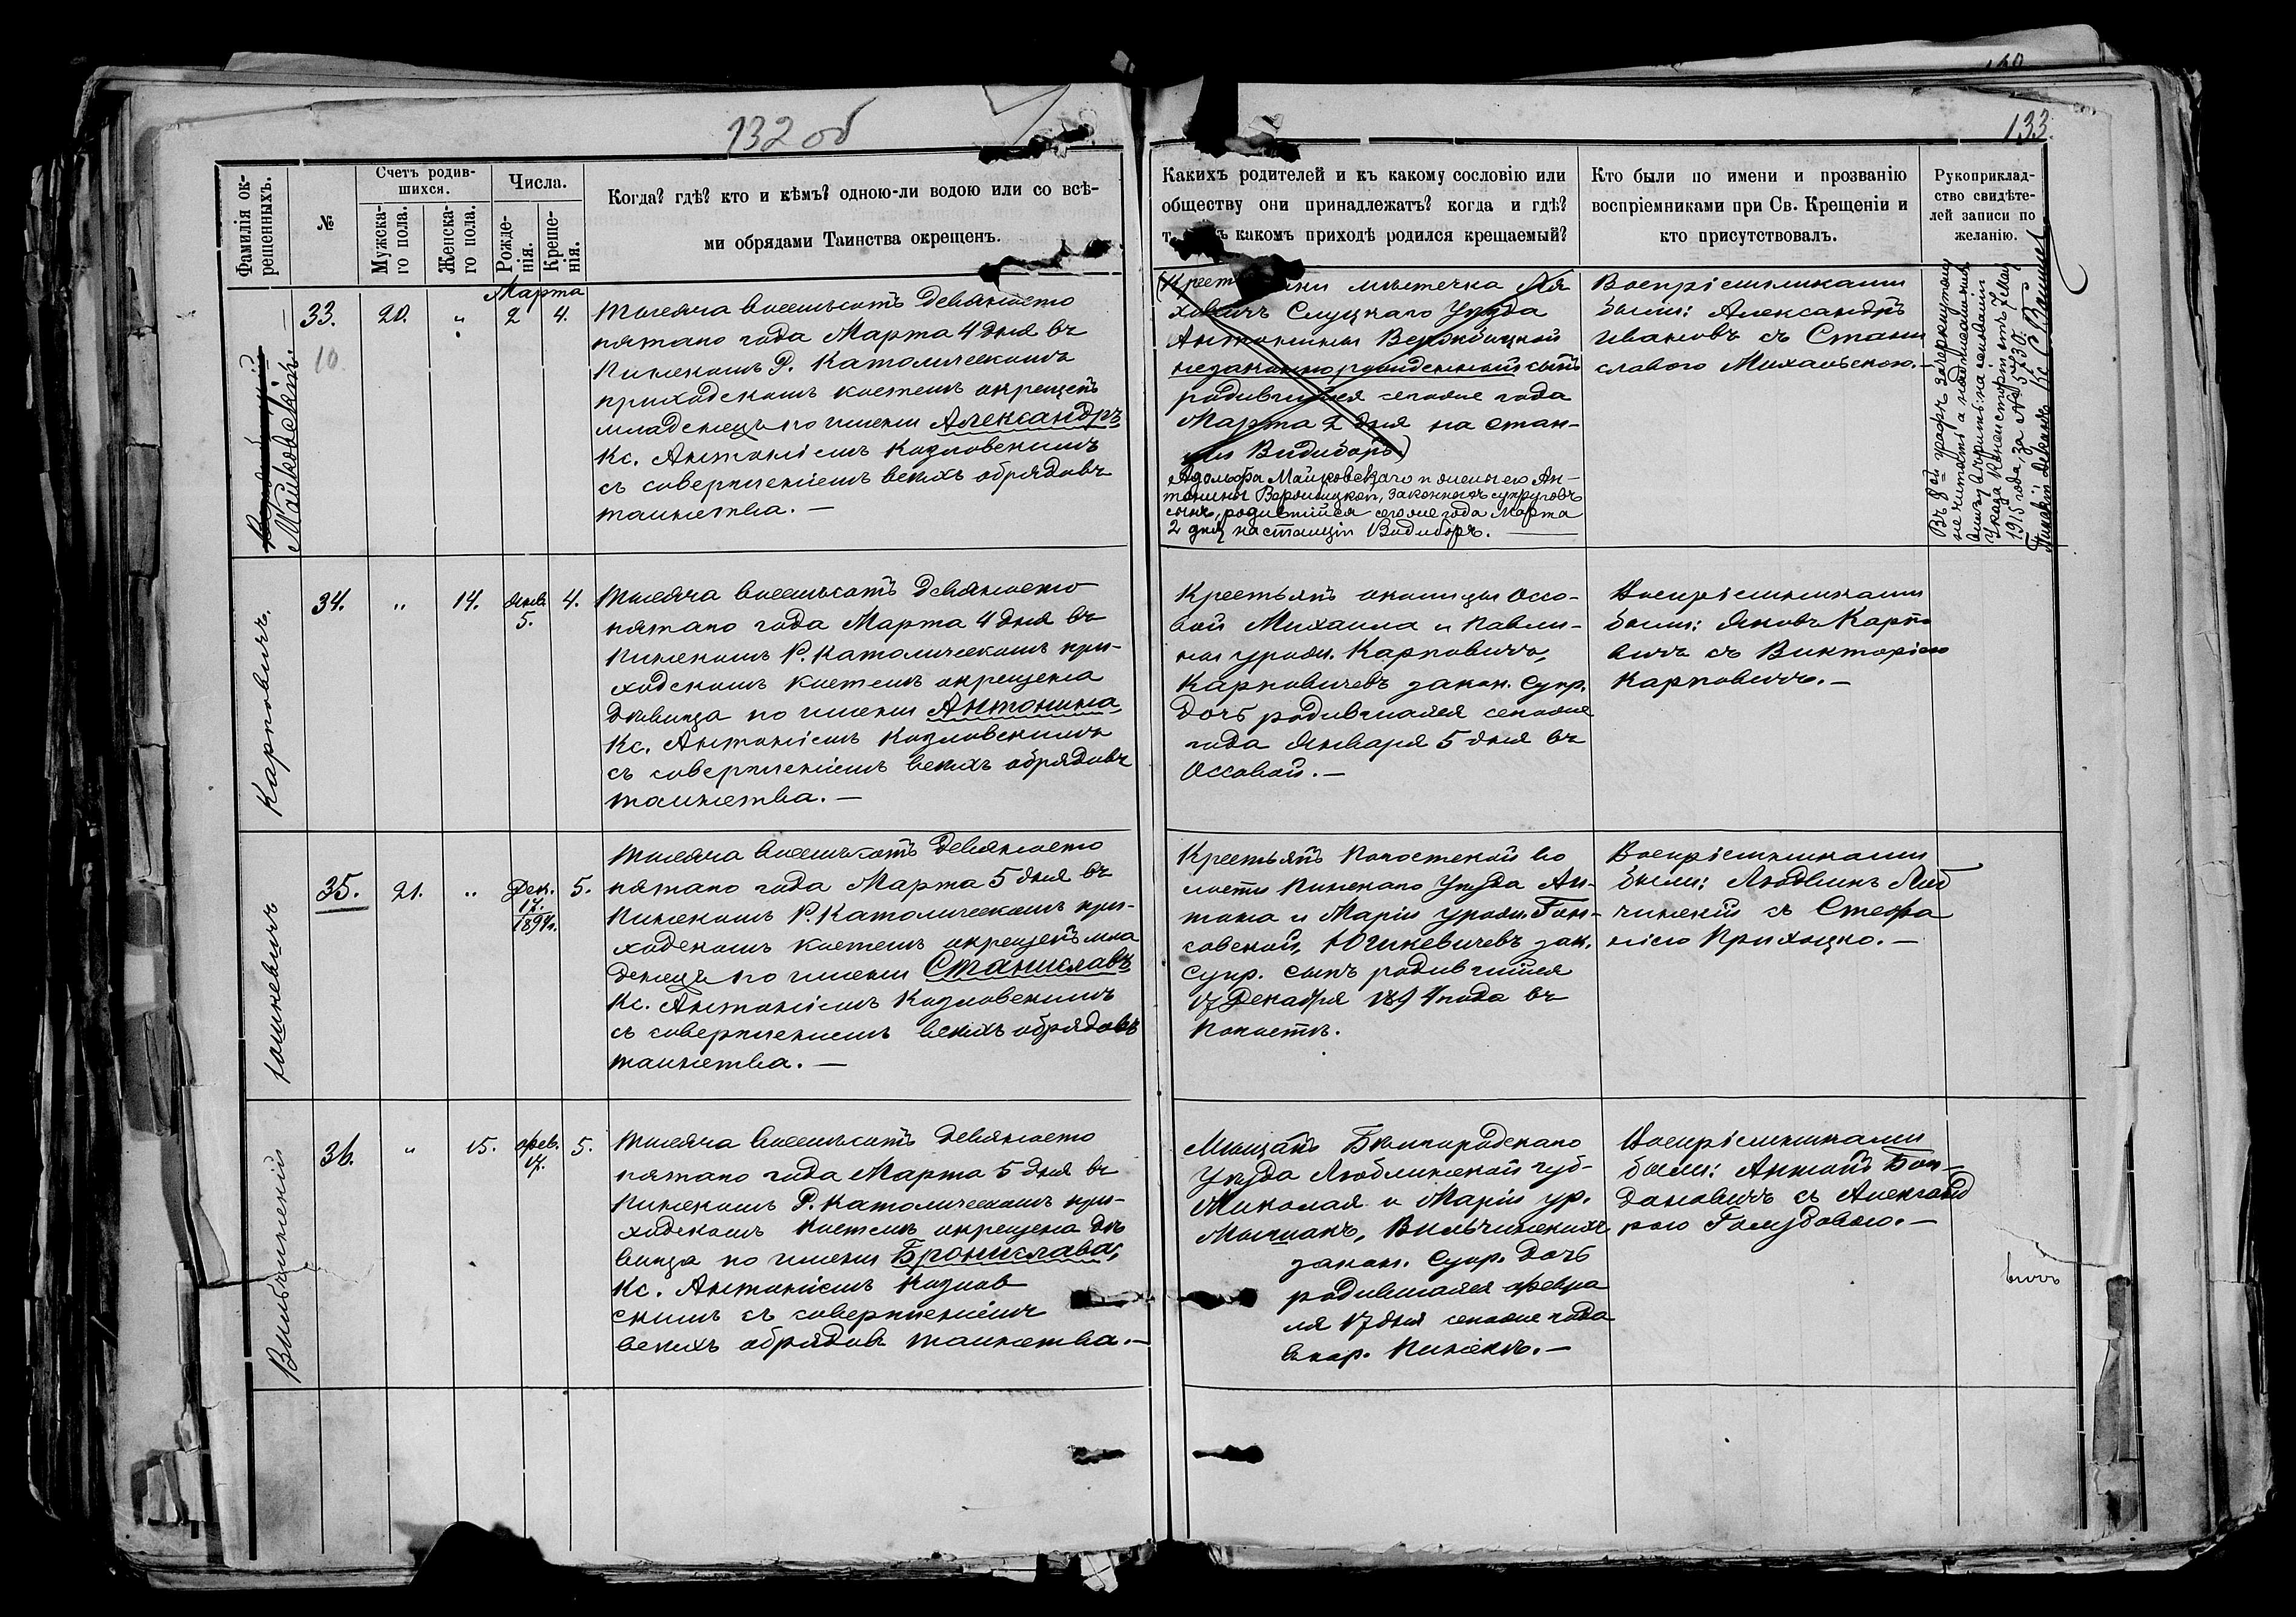 132 об
133.
Фамилія ок-
рещенныхъ.
№
Счетъ родив-
шихся.
Мужска-
го пола.
Женска-
го пола.
Числа.
Рожде-
нія.
Креще-
нія.
Когда? гдѣ? кто и кѣмъ? одною-ли водою или со всѣ-
ми обрядами Таинства окрещенъ.
Какихъ родителей и къ какому сословію или
обществу они принадлежатъ? когда и гдѣ?
какомъ приходѣ родился крещаемый?
Кто были по имени и прозванію
воспріемниками при Св. Крещеніи и
кто присутствовалъ.
Рукоприклад-
ство свидѣте-
лей записи по
желанію.
Майковскій
33.
10
20.
"
Марта
2
4.
Тысяча восемьсотъ девяносто
пятаго года Марта 4 дня въ
Пинскомъ Р. Католическомъ
приходскомъ костелѣ окрещенъ
младенецъ по имени Александръ
Кс. Антоніемъ Козловскимъ
съ совершеніемъ всѣхъ обрядовъ
таинства. —
мѣстечка Ля
ховичъ Слуцкаго Уѣзда
Антонины Вержбицкой
незаконнорожденный сынъ
родившійся сего же года
Марта 2 дня на стан-
ціи Видиборъ)
Адольфа Майковскаго и жены его Ан-
тонины Вержбицкой, законныхъ супруговъ
сынъ, родившійся сего же года Марта
2 дня на станціи Видиборъ. —
Воспріемниками
были: Александръ
Ивановъ съ Стани
славою Михальскою. —
Въ 8ой графѣ зачеркнутому
не читать, а надписанному
внизу вѣрить: на основаніи
Указа Консисторіи отъ 7 Мая
1915 года, за № 5730.
Пинскій Деканъ Кс.
Карповичъ.
34.
"
14.
Янв.
5.
4.
Тысяча восемьсотъ девяносто
пятаго года Марта 4 дня въ
Пинскомъ Р. Католическомъ при-
ходскомъ костелѣ окрещена
дѣвица по имени Антонина
Кс. Антоніемъ Козловскимъ
съ совершеніемъ всѣхъ обрядовъ
таинства. —
Крестьянъ околицы Оссо-
вой Михаила и Павли-
ны урожд. Карповичъ,
Карповичевъ закон. супр.
дочь родившаяся сего же
года Января 5 дня въ
Оссовой. —
Воспріемниками
были: Яковъ Карпо
вичъ съ Викторіею
Карповичъ. —
Юшкевичъ
35.
21.
"
Дек.
17.
1894 г.
5.
Тысяча восемьсотъ девяносто
пятаго года Марта 5 дня въ
Пинскомъ Р. Католическомъ при-
ходскомъ костелѣ окрещенъ мла
денецъ по имени Станиславъ
Кс. Антоніемъ Козловскимъ
съ совершеніемъ всѣхъ обрядовъ
таинства. —
Крестьянъ Погостской во
лости Пинскаго Уѣзда Ан-
тона и Маріи урожд. Гон-
совской, Юшкевичевъ зак.
супр. сынъ родившійся
17 Декабря 1894 года въ
Погостѣ.
Воспріемниками
были: Людвикъ
съ Стефа
ніею Приходько. —
Вильчинскій
36.
"
15.
Фев.
17.
5.
Тысяча восемьсотъ девяносто
пятаго года Марта 5 дня въ
Пинскомъ Р. Католическомъ при-
ходскомъ костелѣ окрещена дѣ
вица по имени Брониславa,
Кс. Антоніемъ Козлов
скимъ съ совершеніемъ
всѣхъ обрядовъ таинства. —
Мѣщанъ Бѣлгородскаго
Уѣзда Люблинской губ-
Николая и Маріи ур.
Вильчинскихъ
закон. супр. дочь
родившаяся Февра
ля 17 дня сего же года
въ гор. Пинскѣ. —
Воспріемниками
были: Антонъ Бог-
дановичъ съ Александ
рою Голубовою. —
вичъ